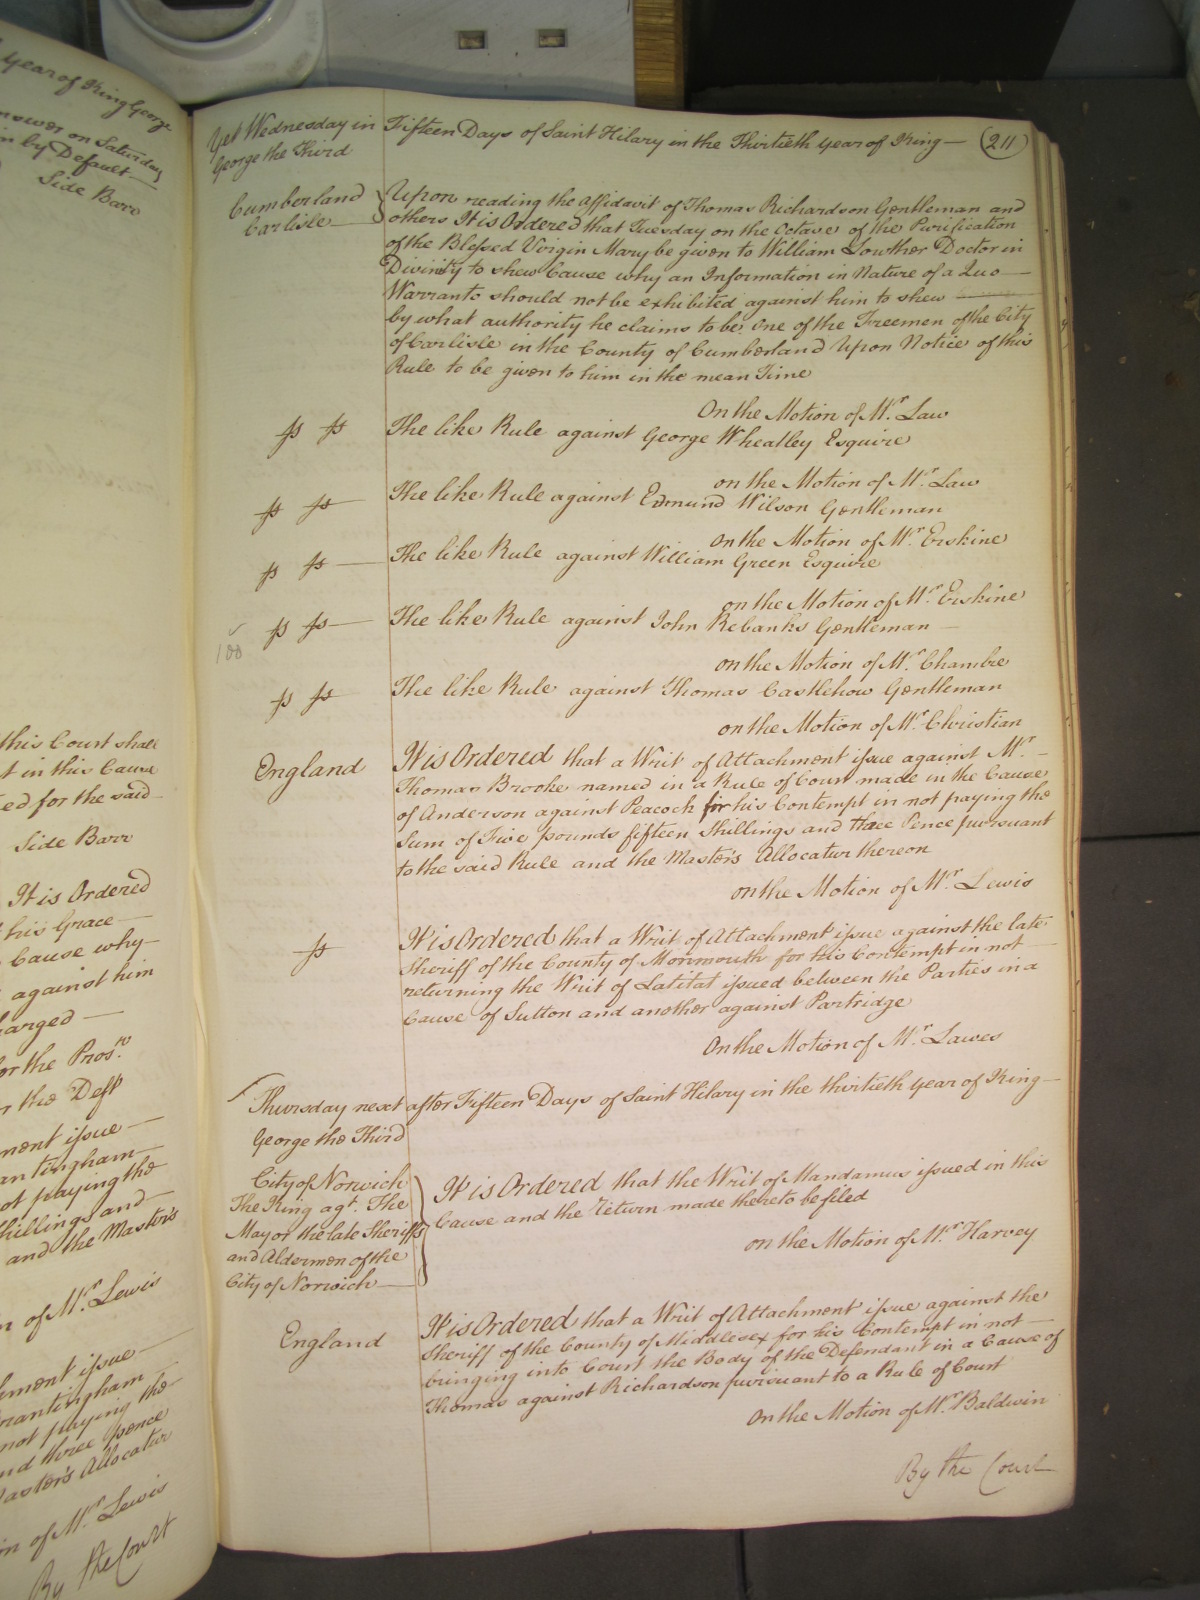 year of King George
answer on Saturday
in by Default
Side Barr
this Court shall
t in this Cause
ed for the said
Side Barr
It is Ordered
his Grace
Cause why
against him
harged
for the Pros.r
r the Deft
ment issue
antingham
ot paying the
hillings and
and the Master's
n of Mr. Lewis
hment issue
rantingham
not paying the
nd three pence
Master's Allocatur
on of Mr. Lewis
By the Court
Yet Wednesday in Fifteen Days of Saint Hilary in the Thirtieth year of King (211)
George the Third
Cumberland
Carlisle
Upon reading the affidavit of Thomas Richardson Gentleman and
others It is Ordered that Tuesday on the Octave of the Purification
of the Blessed Virgin Mary be given to William Lowther Doctor in
Divinity to shew Cause why an Information in Nature of a Quo
Warranto should not be exhibited against him to shew
by what authority he claims to be One of the Freemen of the City
of Carlisle in the County of Cumberland Upon Notice of this
Rule to be given to him in the mean Time
On the Motion of Mr. Law
ss ss The like Rule against George Wheatley Esquire
on the Motion of Mr. Law
ss ss The like Rule against Edmund Wilson Gentleman
on the Motion of Mr. Erskine
ss ss The like Rule against William Green Esquire
on the Motion of Mr. Erskine
ss ss The like Rule against John Rebanks Gentleman
100
on the Motion of Mr. Chambre
ss ss The like Rule against Thomas Castlehow Gentleman
on the Motion of Mr. Christian
England It is Ordered that a Writ of Attachment issue against Mr.
Thomas Brooke named in a Rule of Court made in the Cause
of Anderson against Peacock for his Contempt in not paying the
Sum of Five pounds fifteen Shillings and three Pence pursuant
to the said Rule and the Master's Allocatur thereon
on the Motion of Mr. Lewis
ss It is Ordered that a Writ of Attachment issue against the late
Sheriff of the County of Monmouth for his Contempt in not
returning the Writ of Latitat issued between the Parties in a
Cause of Sutton and another against Partridge
On the Motion of Mr. Lawes
Thursday next after Fifteen Days of Saint Hilary in the thirtieth year of King
George the Third
City of Norwich
The King agt. The
Mayor the late Sheriffs
and Aldermen of the
City of Norwich
It is Ordered that the Writ of Mandamus issued in this
Cause and the return made thereto be filed
on the Motion of Mr. Harvey
England It is Ordered that a Writ of Attachment issue against the
Sheriff of the County of Middlesex for his Contempt in not
bringing into Court the Body of the Defendant in a Cause of
Thomas against Richardson pursuant to a Rule of Court
On the Motion of Mr. Baldwin
By the Court